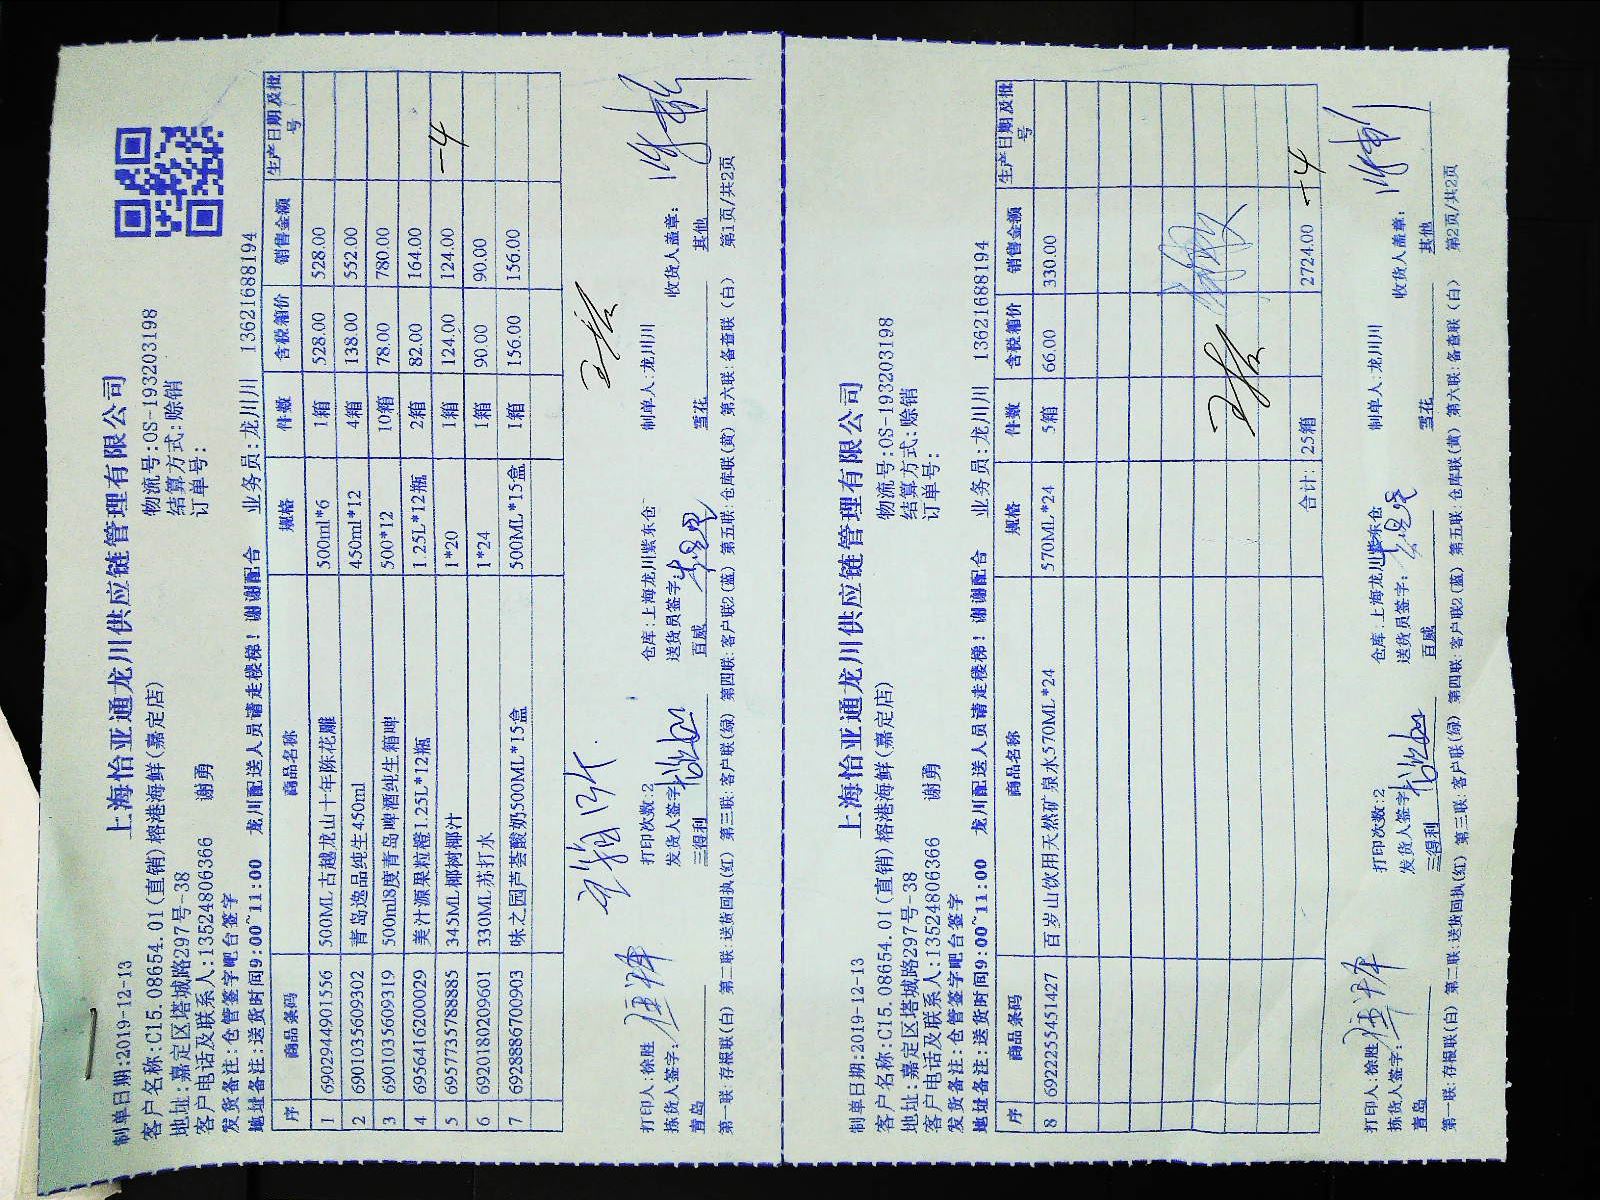 上海怡亚通龙川供应链管理有限公司
制单日期:2019-12-13
物流号:OS-193203198
客户名称:C15.08654.01(直销)榕港海鲜(嘉定店)
结算方式:赊销
地址:嘉定区塔城路297号-38
订单号:
客户电话及联系人:13524806366 谢勇
发货备注:仓管签字吧台签字
地址备注:送货时间9:00~11:00 龙川配送人员请走楼梯!谢谢配合 业务员:龙川川 13621688194
序 商品条码 商品名称 规格 件数 含税箱价 销售金额 生产日期及批号
1 6902944901556 500ML古越龙山十年陈花雕 500ml*6 1箱 528.00 528.00
2 6901035609302 青岛逸品纯生450ml 450ml*12 4箱 138.00 552.00
3 6901035609319 500ml8度青岛啤酒纯生箱啤 500*12 10箱 78.00 780.00
4 6956416200029 美汁源果粒橙1.25L*12瓶 1.25L*12瓶 2箱 82.00 164.00
5 6957735788885 345ML椰树椰汁 1*20 1箱 124.00 124.00 -4
6 6920180209601 330ML苏打水 1*24 1箱 90.00 90.00
7 6928886700903 味之园芦荟酸奶500ML*15盒 500ML*15盒 1箱 156.00 156.00
打印人:徐胜 打印次数:2 仓库:上海龙川紫东仓 制单人:龙川川
拣货人签字: 发货人签字: 送货员签字: 收货人盖章:
青岛 三得利 百威 雪花 其他
第一联:存根联(白) 第二联:送货回执(红) 第三联:客户联(绿) 第四联:客户联2(蓝) 第五联:仓库联(黄) 第六联:备查联(白) 第1页/共2页
上海怡亚通龙川供应链管理有限公司
制单日期:2019-12-13
物流号:OS-193203198
客户名称:C15.08654.01(直销)榕港海鲜(嘉定店)
结算方式:赊销
地址:嘉定区塔城路297号-38
订单号:
客户电话及联系人:13524806366 谢勇
发货备注:仓管签字吧台签字
地址备注:送货时间9:00~11:00 龙川配送人员请走楼梯!谢谢配合 业务员:龙川川 13621688194
序 商品条码 商品名称 规格 件数 含税箱价 销售金额 生产日期及批号
8 6922255451427 百岁山饮用天然矿泉水570ML*24 570ML*24 5箱 66.00 330.00
合计: 25箱 2724.00 -4
打印人:徐胜 打印次数:2 仓库:上海龙川紫东仓 制单人:龙川川
拣货人签字: 发货人签字: 送货员签字: 收货人盖章:
青岛 三得利 百威 雪花 其他
第一联:存根联(白) 第二联:送货回执(红) 第三联:客户联(绿) 第四联:客户联2(蓝) 第五联:仓库联(黄) 第六联:备查联(白) 第2页/共2页